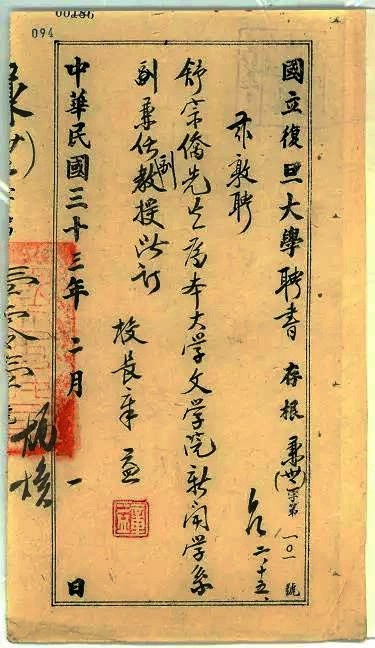 00186
094
國立復旦大學聘書 存根 兼(世)字第一〇一號
二、十五、
茲敦聘
舒宗僑先生為本大學文學院新聞學系
副兼任副教授此訂
校長章益
中華民國三十三年二月一日